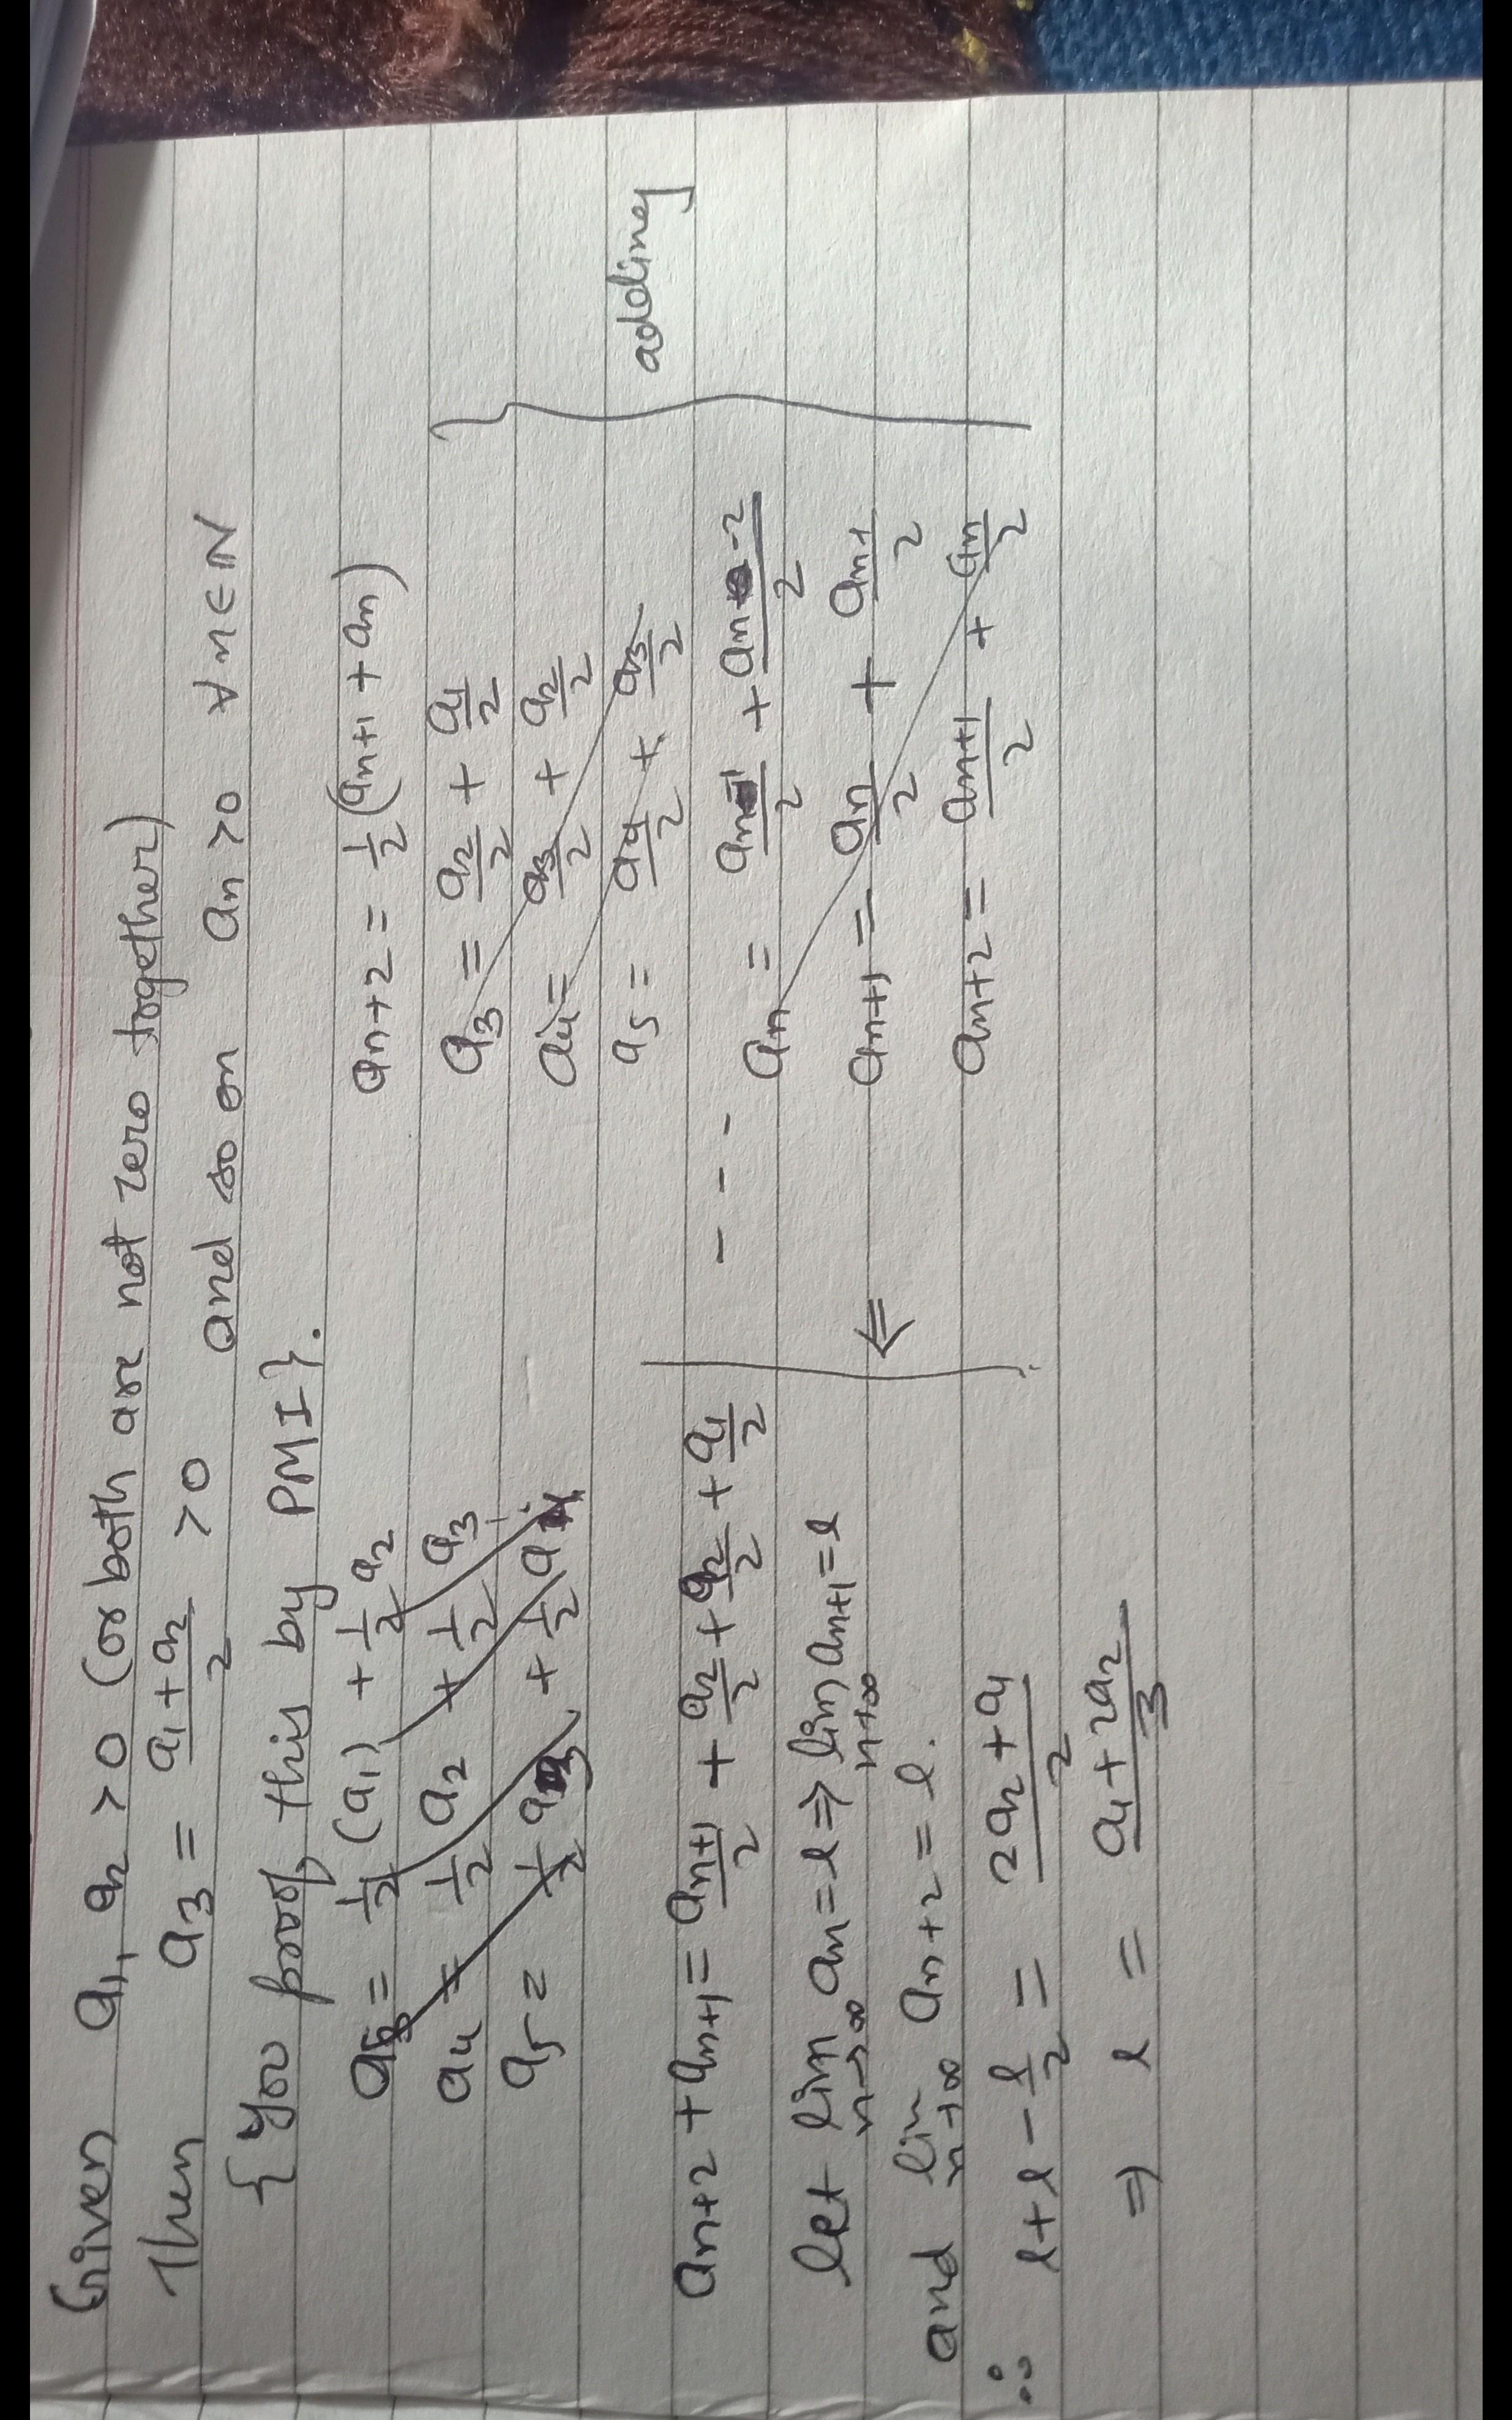 Given a1, a2 > 0 (or both are not zero together)
Then a3 = (a1 + a2)/2 > 0 and so on an > 0 ∀ n ∈ N
{ you proof this by PMI}.
a3 = 1/2 (a1) + 1/2 a2
a4 = 1/2 a2 + 1/2 a3
a5 = 1/2 a3 + 1/2 a4
an+2 = 1/2 (an+1 + an)
a3 = a2/2 + a1/2
a4 = a3/2 + a2/2
a5 = a4/2 + a3/2
- - -
an = an-1/2 + an-2/2
an+1 = an/2 + an-1/2
an+2 = an+1/2 + an/2
adding
⇐
an+2 + an+1 = an+1/2 + a2/2 + a2/2 + a1/2
let lim n→∞ an = l ⇒ lim n→∞ an+1 = l
and lim n→∞ an+2 = l.
∴ l + l - l/2 = (2a2 + a1)/2
⇒ l = (a1 + 2a2)/3